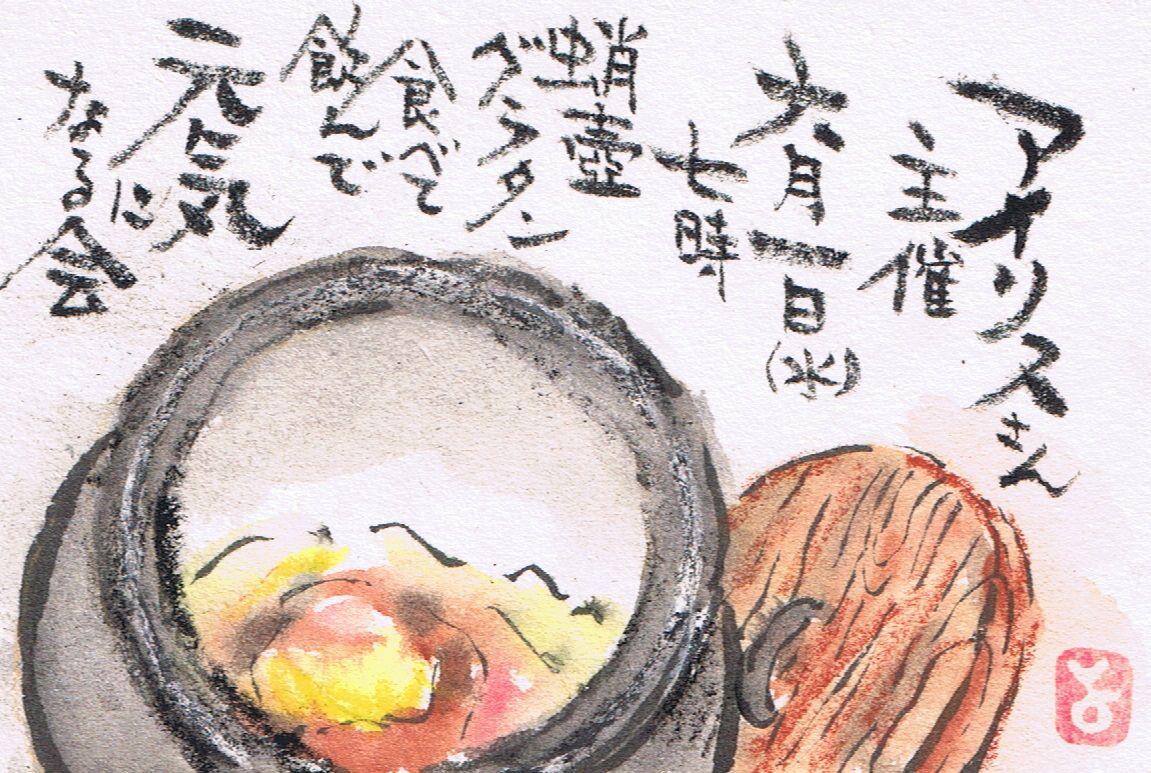 アイリスさん
主催
六月一日(水)
七時
蛸壺
グラタン
食べて
飲んで
元気に
なる会